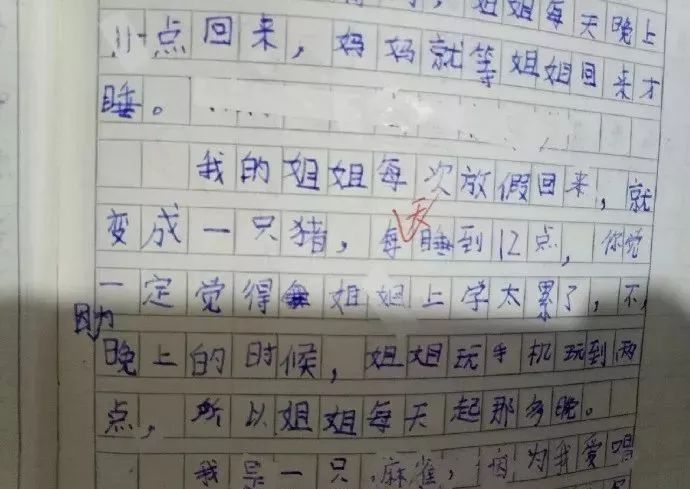 姐姐每天晚上
11点回来，妈妈就等姐姐回来才
睡。
我的姐姐每次放假回来，就
变成一只猪，每天睡到12点，你觉
一定觉得姐姐上学太累了，不，
因为
晚上的时候，姐姐玩手机玩到两
点，所以姐姐每天起那多晚。
我是一只麻雀，因为我爱唱